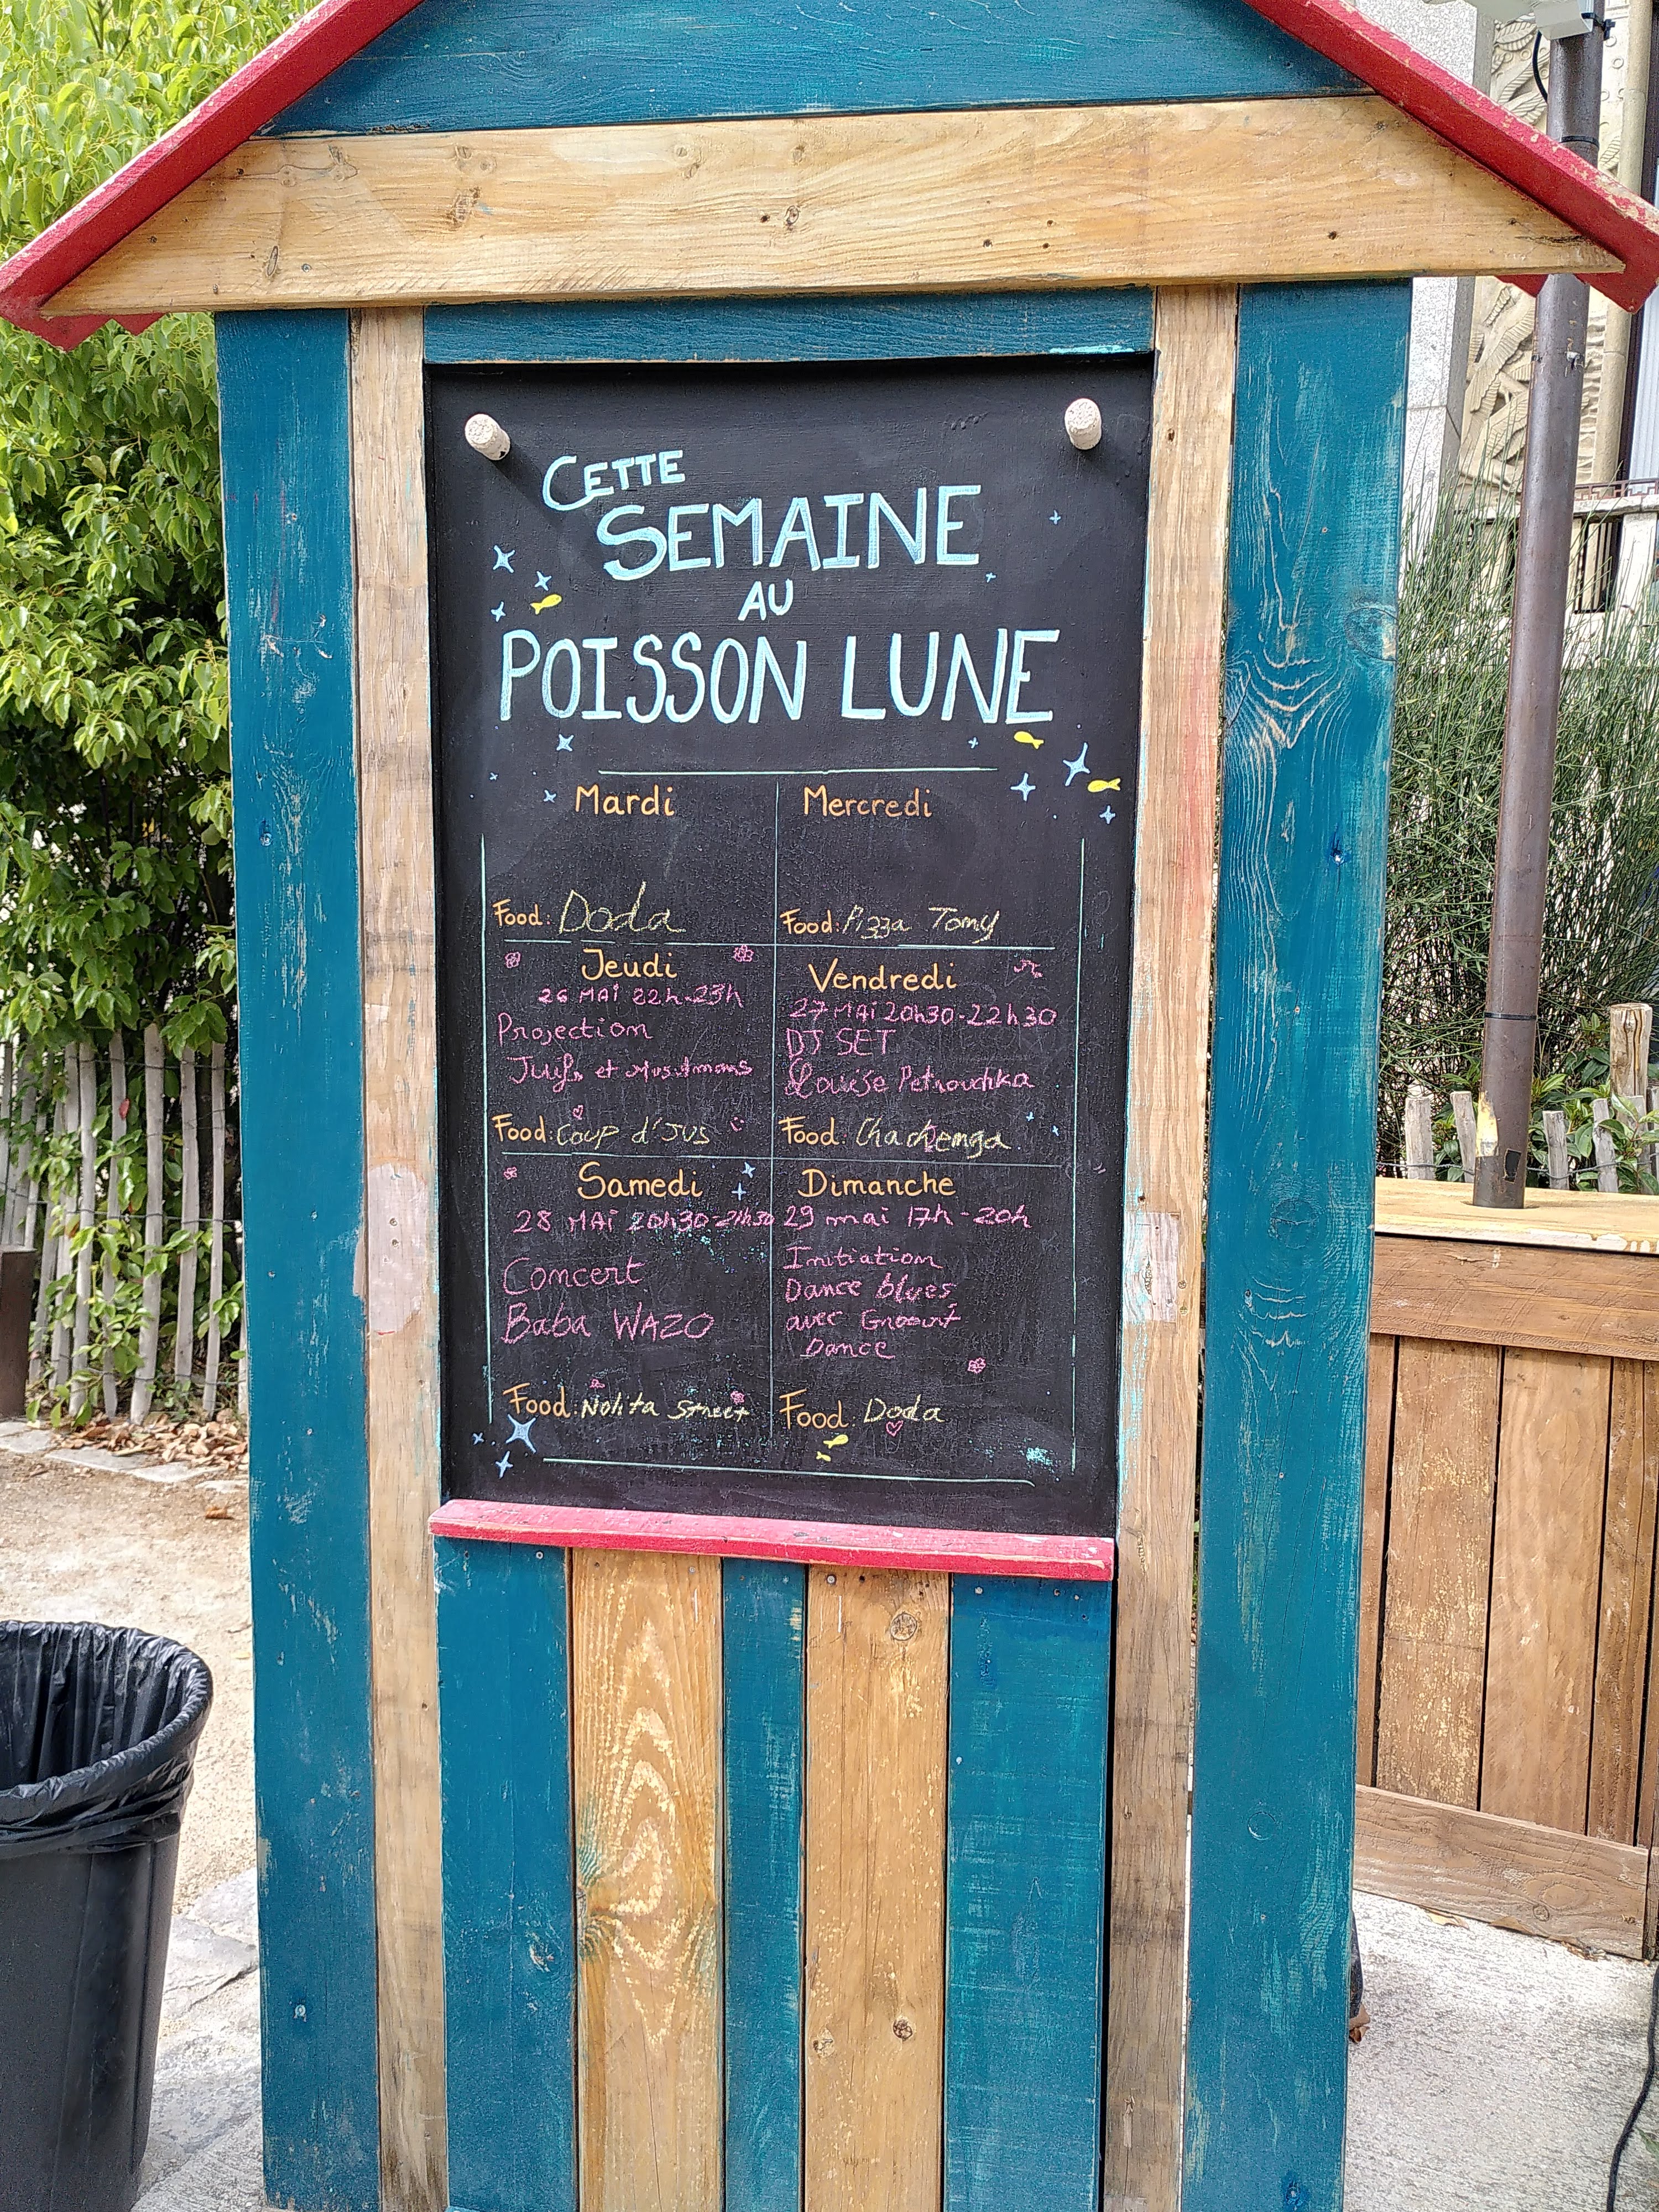 CETTE
SEMAINE
AU
POISSON LUNE
Mardi
Food: Doda
Mercredi
Food: Pizza Tomy
Jeudi
26 MAI 22h-23h
Projection
Juifs et Musulmans
Food: Coup d'Jus
Vendredi
27 MAI 20h30-22h30
DJ SET
Louise Petrouchka
Food:
Samedi
28 MAI 20h30-21h30
Concert
Baba WAZO
Food: Nolita Street
Dimanche
29 mai 17h-20h
Initiation
Dance blues
avec
Dance
Food: Doda